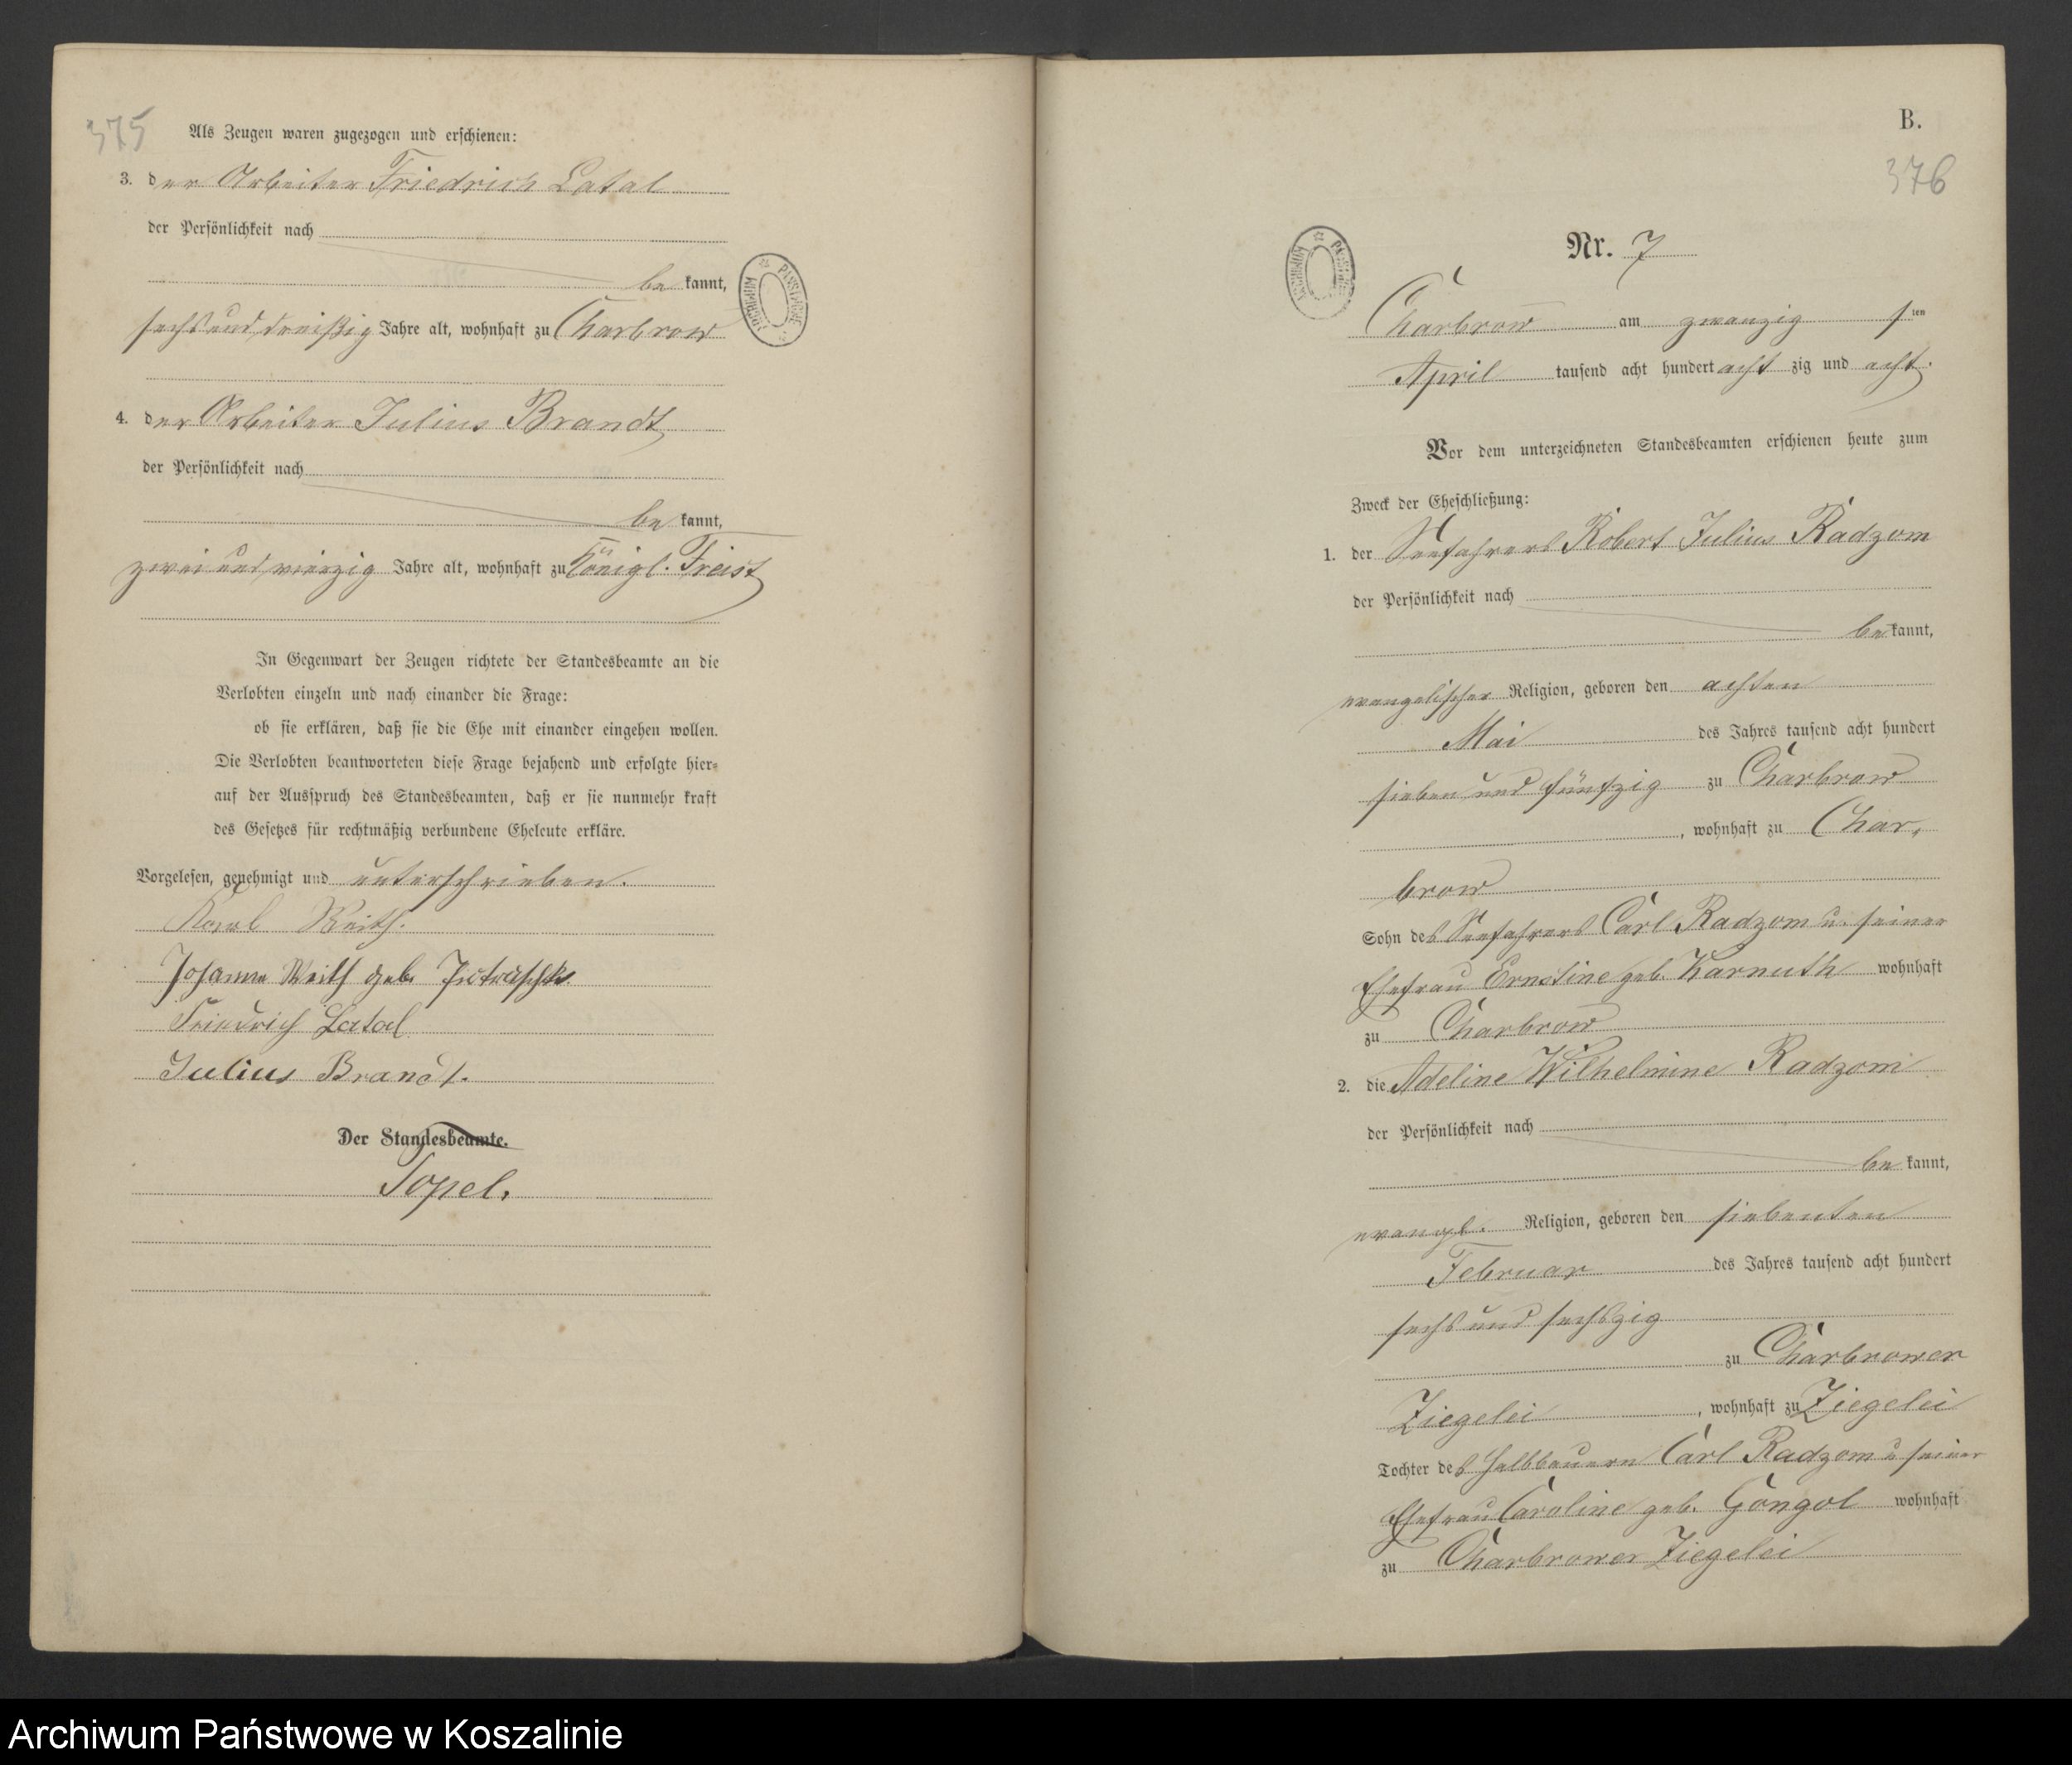 375
Als Zeugen waren zugezogen und erschienen:
3. der Arbeiter Friedrich Latal
der Persönlichkeit nach
be kannt,
sechs und dreißig Jahre alt, wohnhaft zu Charbrow
4. der Arbeiter Julius Brandt
der Persönlichkeit nach
be kannt,
zwei und vierzig Jahre alt, wohnhaft zu Königl. Freist
In Gegenwart der Zeugen richtete der Standesbeamte an die
Verlobten einzeln und nach einander die Frage:
ob sie erklären, daß sie die Ehe mit einander eingehen wollen.
Die Verlobten beantworteten diese Frage bejahend und erfolgte hier-
auf der Ausspruch des Standesbeamten, daß er sie nunmehr kraft
des Gesetzes für rechtmäßig verbundene Eheleute erkläre.
Vorgelesen, genehmigt und unterschrieben.
Karl Weith.
Johanna Weith geb.
Friedrich Latal
Julius Brandt.
Der Standesbeamte.
Topel.
ARCHIWUM PAŃSTWOWE
B.
376
ARCHIWUM PAŃSTWOWE
Nr. 7
Charbrow am zwanzig sten
April tausend acht hundert acht zig und acht.
Vor dem unterzeichneten Standesbeamten erschienen heute zum
Zweck der Eheschließung:
1. der Seefahrers Robert Julius Radzom
der Persönlichkeit nach
be kannt,
evangelischer Religion, geboren den achten
Mai des Jahres tausend acht hundert
sieben und fünfzig zu Charbrow
, wohnhaft zu Char,
brow
Sohn des Seefahrers Carl Radzom u. seiner
Ehefrau Ernestine geb. Karnuth wohnhaft
zu Charbrow
2. die Adeline Wilhelmine Radzom
der Persönlichkeit nach
be kannt,
evangl. Religion, geboren den siebenten
Februar des Jahres tausend acht hundert
sechs und sechszig
zu Charbrower
Ziegelei , wohnhaft zu Ziegelei
Tochter des Halbbauern Carl Radzom u seiner
Ehefrau Caroline geb. Gongol wohnhaft
zu Charbrower Ziegelei
Archiwum Państwowe w Koszalinie